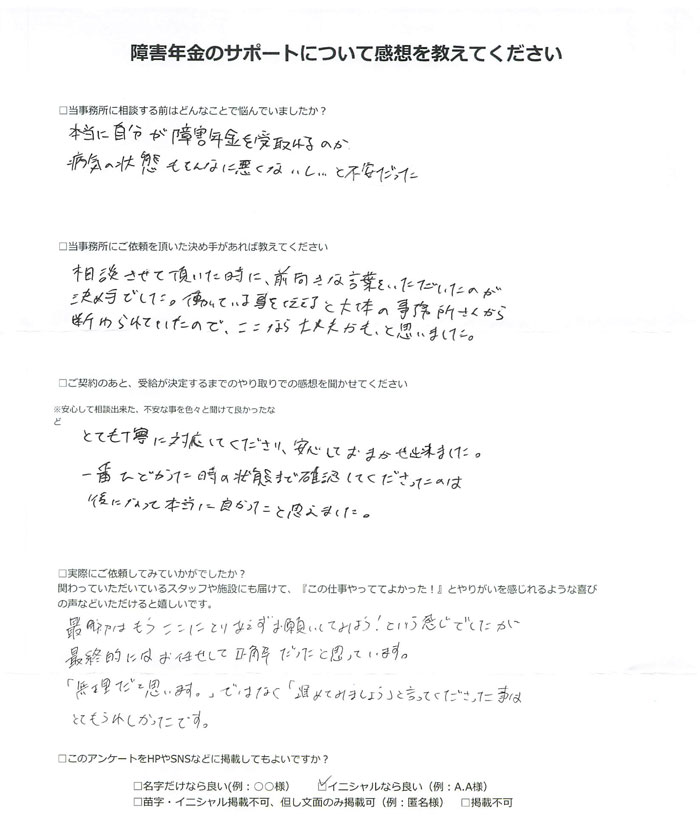 障害年金のサポートについて感想を教えてください
□当事務所に相談する前はどんなことで悩んでいましたか？
本当に自分が障害年金を受取れるのか
病気の状態もそんなに悪くないし…と不安だった
□当事務所にご依頼を頂いた決め手があれば教えてください
相談させて頂いた時に、前向きな言葉をいただいたのが
決め手でした。働いている事を伝えると大体の事務所さんから
断わられていたので、ここなら大丈夫かも、と思いました。
□ご契約のあと、受給が決定するまでのやり取りでの感想を聞かせてください
※安心して相談出来た、不安な事を色々と聞けて良かったな
ど
とても丁寧に対応してくださり、安心しておまかせ出来ました。
一番ひどかった時の状態まで確認してくださったのは
後になって本当に良かったこと思えました。
□実際にご依頼してみていかがでしたか？
関わっていただいているスタッフや施設にも届けて、『この仕事やっててよかった！』とやりがいを感じれるような喜び
の声などいただけると嬉しいです。
最初はもうここにとりあえずお願いしてみよう！という感じでしたが
最終的にはお任せして正解だったと思っています。
「無理だと思います。」ではなく「進めてみましょう」と言ってくださった事は
とてもうれしかったです。
□このアンケートをHPやSNSなどに掲載してもよいですか？
□名字だけなら良い(例：〇〇様） ☑イニシャルなら良い（例：A.A様）
□苗字・イニシャル掲載不可、但し文面のみ掲載可（例：匿名様） □掲載不可